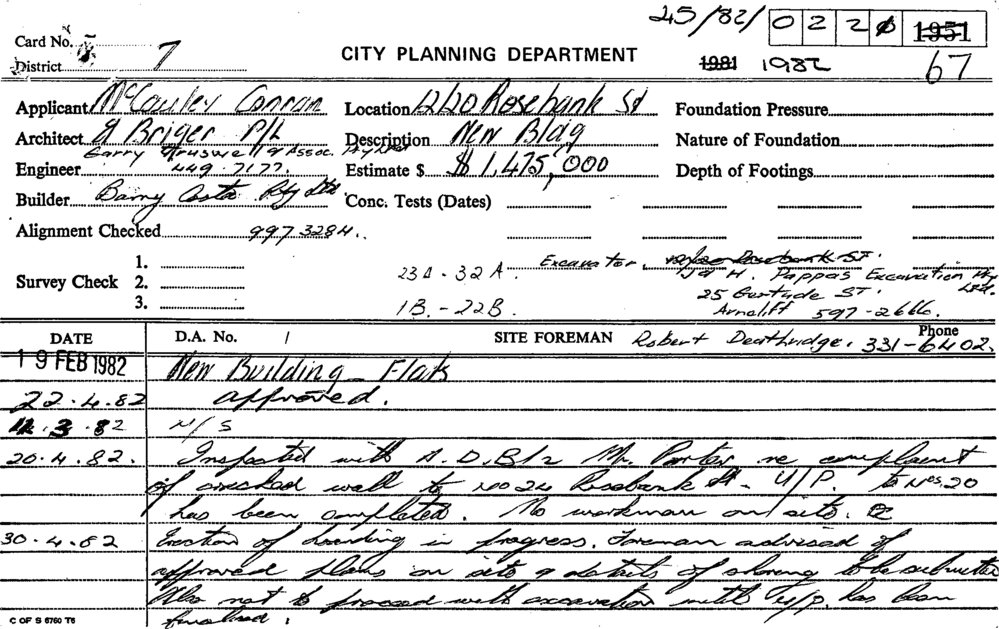 25/82/ 0 2 2 0 1951
Card No. 7
District
CITY PLANNING DEPARTMENT 1981 1982 67
Applicant McCauley Conran Location 12/20 Rosebank St Foundation Pressure
Architect A Briger P/L Description New Bldg Nature of Foundation
Garry & Assoc. Pty Ltd
Engineer 449.7177. Estimate $ $1,475,000 Depth of Footings
Builder Barry Costa Pty Ltd. Conc. Tests (Dates)
Alignment Checked 997 3284.
Survey Check 1. 2. 3.
23A - 32A. Excavator. J & H. Pappas Excavation Pty Ltd.
1B. - 22B. 25 Gertrude ST.
Arncliff 597-2666.
DATE D.A. No. / SITE FOREMAN Robert Deathridge. Phone 331-6402.
19 FEB 1982 New Building - Flats
22.4.82 approved.
3.82 N/S
20.4.82. Inspected with A.D.B/2 Mr. Porter re complaint
of cracked wall to No 24 Rosebank St. U/P. to Nos. 20
has been completed. No workman on site.
30.4.82 Erection of hoarding in progress. Foreman advised of
approved plans on site & details of shoring to be submitted
Also not to proceed with excavation until U/P. has been
finalised.
C OF S 6760 T6